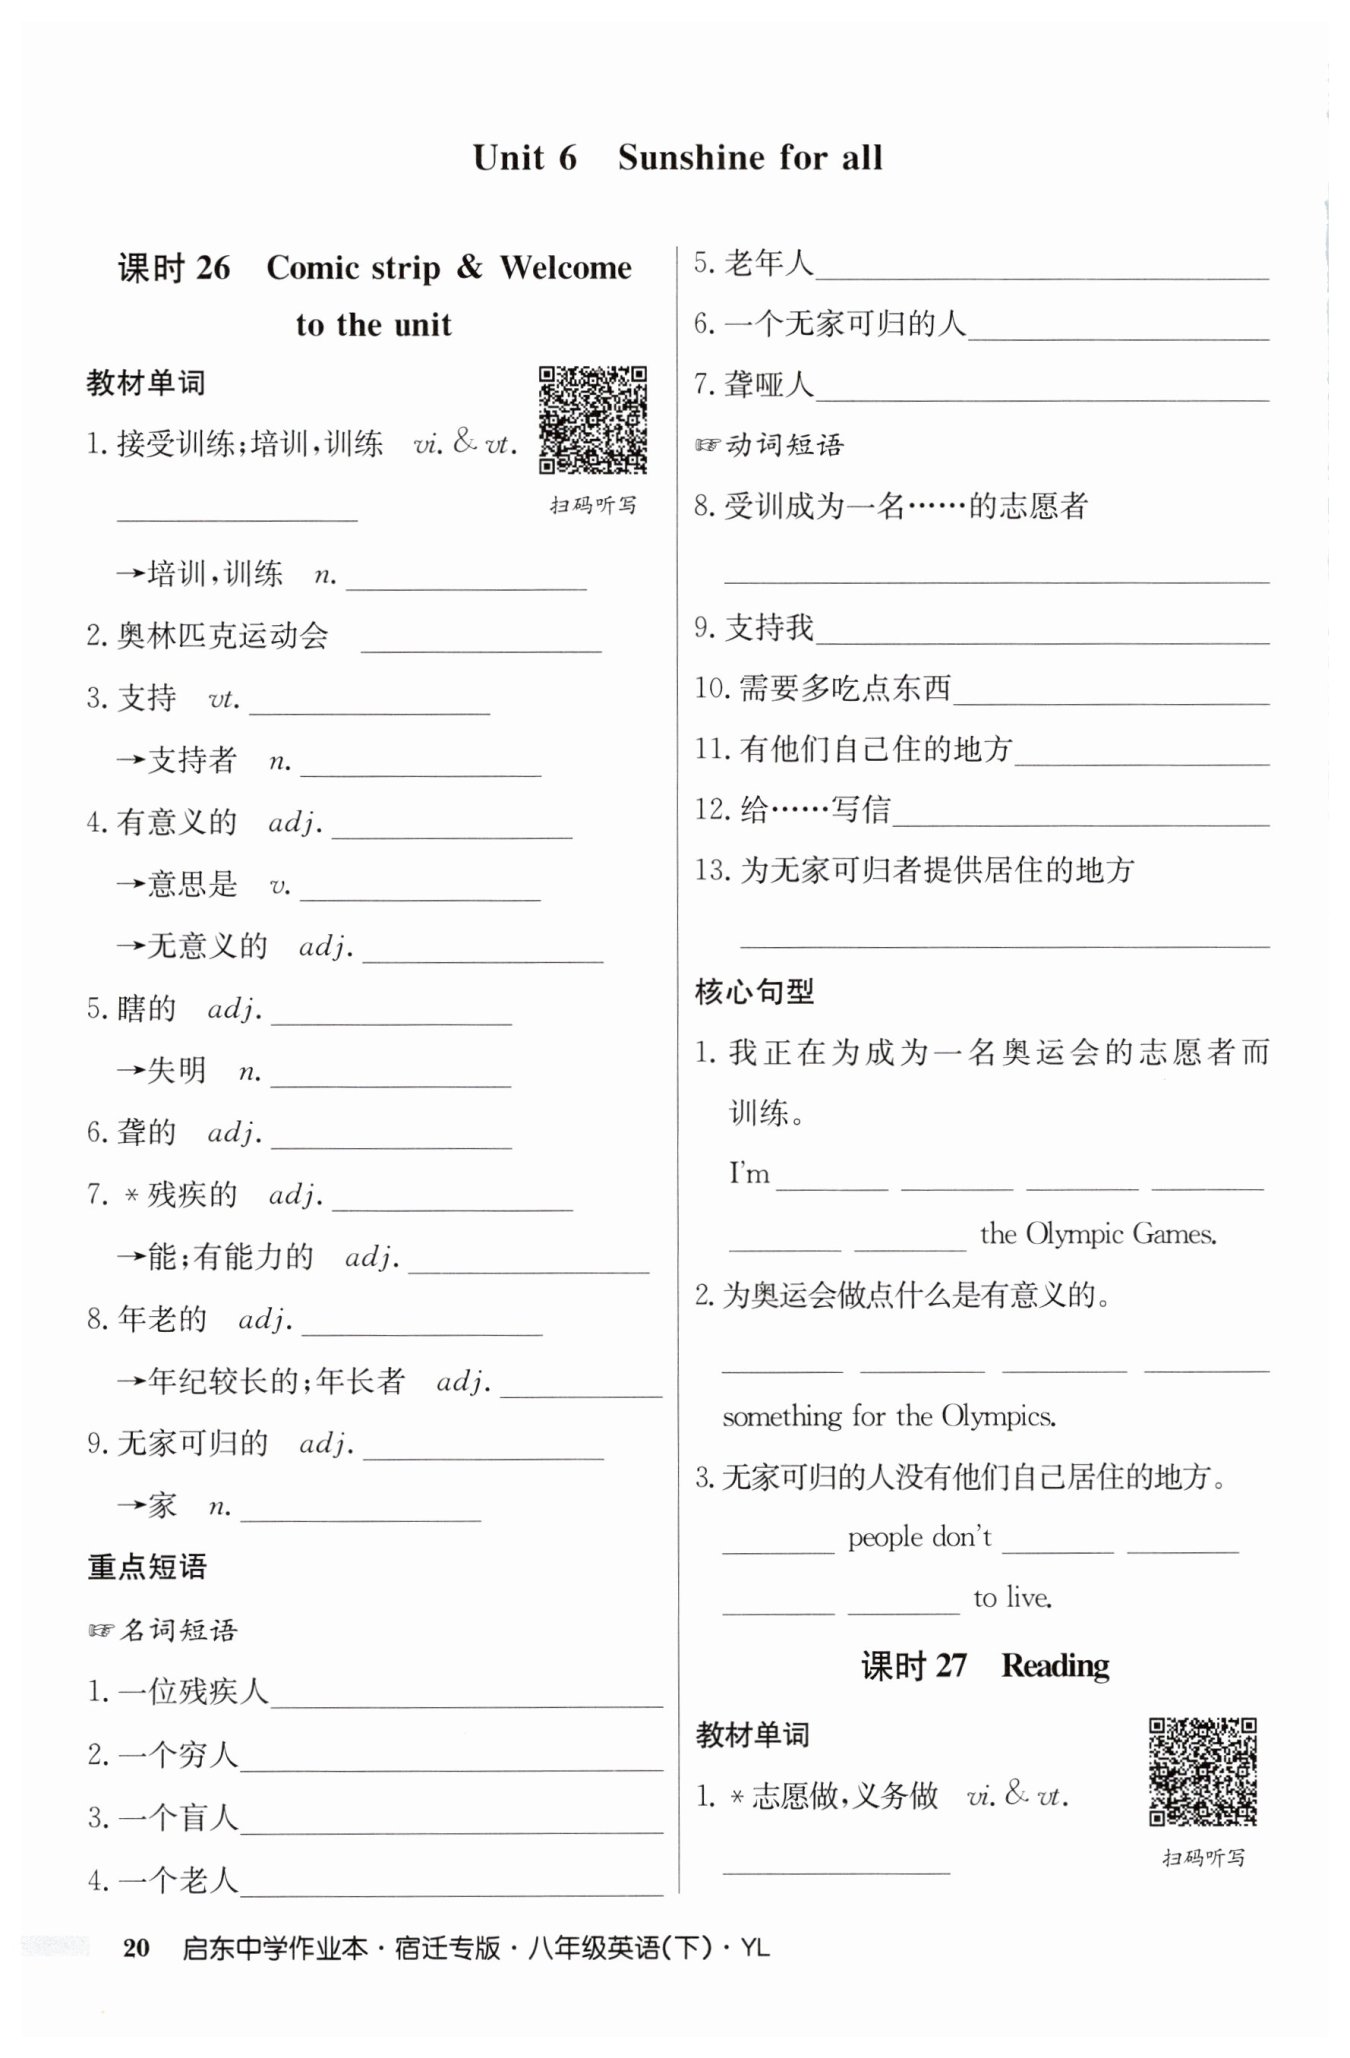 Unit 6 Sunshine for all
课时 26 Comic strip & Welcome
to the unit
教材单词
1. 接受训练;培训,训练 vi. & vt.
扫码听写
→培训,训练 n.
2. 奥林匹克运动会
3. 支持 vt.
→支持者 n.
4. 有意义的 adj.
→意思是 v.
→无意义的 adj.
5. 瞎的 adj.
→失明 n.
6. 聋的 adj.
7. *残疾的 adj.
→能;有能力的 adj.
8. 年老的 adj.
→年纪较长的;年长者 adj.
9. 无家可归的 adj.
→家 n.
重点短语
☞名词短语
1. 一位残疾人
2. 一个穷人
3. 一个盲人
4. 一个老人
5. 老年人
6. 一个无家可归的人
7. 聋哑人
☞动词短语
8. 受训成为一名……的志愿者
9. 支持我
10. 需要多吃点东西
11. 有他们自己住的地方
12. 给……写信
13. 为无家可归者提供居住的地方
核心句型
1. 我正在为成为一名奥运会的志愿者而
训练。
I'm
the Olympic Games.
2. 为奥运会做点什么是有意义的。
something for the Olympics.
3. 无家可归的人没有他们自己居住的地方。
people don't
to live.
课时 27 Reading
教材单词
1. *志愿做,义务做 vi. & vt.
扫码听写
20 启东中学作业本·宿迁专版·八年级英语(下)·YL